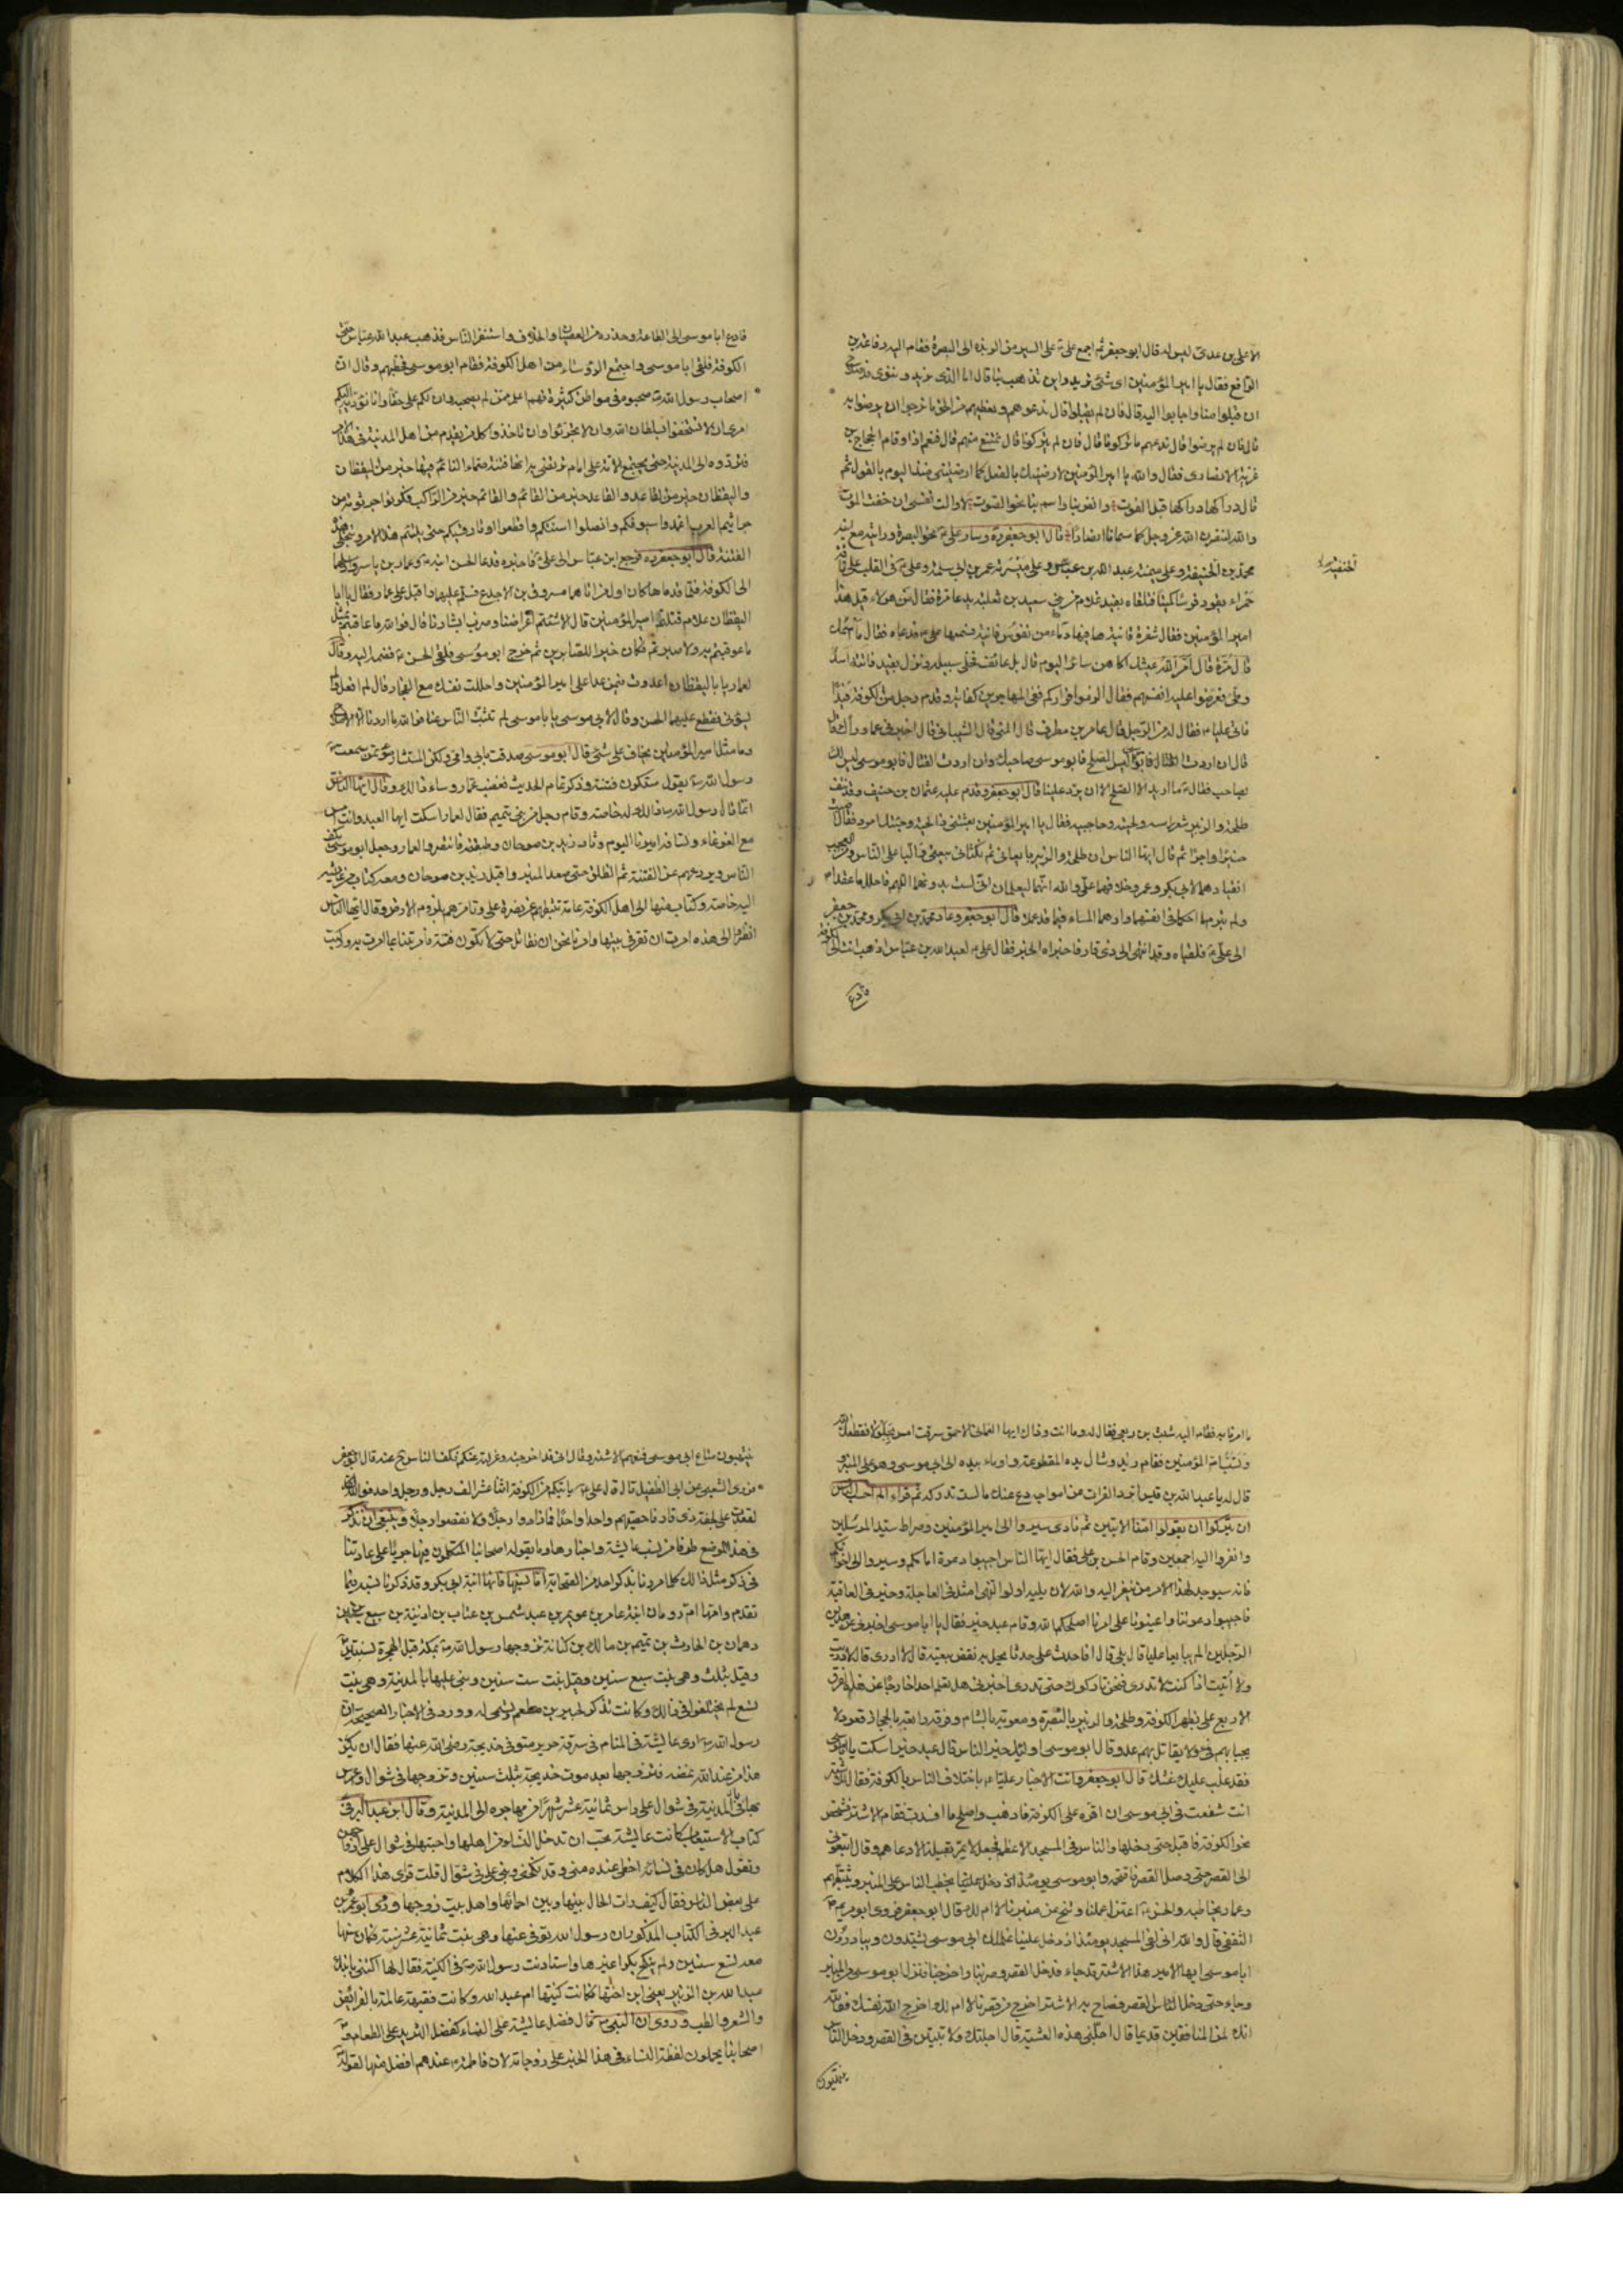 الاعلى بن عدى لبوله قال ابو جعفر ثم اجمع على ع على السير من الربذه الى البصرة فقام اليه رفاعة بن
الرافع فقال يا امير المؤمنين اى شئ تريد واين تذهب بنا قال اما الذى نريد وننوى فالاصلاح
ان قبلوا منا واجابوا اليه قال فان لم يقبلوا قال ندعوهم ونعطيهم من الحق ما نرجوا ان يرضوا به
قال فان لم يرضوا قال ندعهم ما تركونا قال فان لم يتركونا قال نمتنع منهم قال فنعم اذا وقام الحجاج بن
غزية الانصارى فقال والله يا امير المؤمنين لارضينك بالفعل كما ارضيتنى منذ اليوم بالقول ثم
قال دراكها دراكها قبل الفوت وانفر بنا واسم بنا نحو الصوت لا والت نفسى ان خفت الموت
والله لننصرن الله عز وجل كما سمانا انصارا قال ابو جعفر ره وسار على ع نحو البصرة ورايته مع ابنه
محمد بن الحنفية وعلى ميمنته عبد الله بن عباس وعلى ميسرته عمر بن ابى سلمة وعلى ع فى القلب على ناقة
حمراء يقود فرسا كميتا فتلقاه بفيد غلام من بنى سعيد بن ثعلبة يدعا مرة فقال من هولاء قيل هذا
امير المؤمنين فقال سفرة فانية فيها دماء من نفوس فانية فسمعها على ع فدعاه فقال ما اسمك
قال مرة قال امر الله عيشك اكاهن سائر اليوم قال بل عائف فخلى سبيله ونزل بفيد فاتته اسد
وطى فعرضوا عليه انفسهم فقال الزموا قراركم ففى المهاجرين كفاية وقدم رجل من الكوفة فيدا
فاتى عليا ع فقال له من الرجل قال عامر بن مطرف قال الليثى قال الشيبانى قال اخبرنى عما وراك قال
قال ان اردت الصلح فابو موسى صاحبك وان اردت القتال فابو موسى ليس لك
بصاحب فقال ع ما اريد الا الصلح الا ان يرد علينا قال ابو جعفر وقدم عليه عثمان بن حنيف وقد نتف
طلحة والزبير شعر راسه ولحيته وحاجبيه فقال يا امير المؤمنين بعثتنى ذا لحية وجئتك امرد فقال اصبت
خيرا واجرا ثم قال ايها الناس ان طلحة والزبير بايعانى ثم نكثانى بيعتى والبا على الناس ومن العجب
انقيادهما لابى بكر وعمر وخلافهما على والله انهما ليعلمان انى لست بدونهما اللهم فاحلل ما عقدا
ولم يبرم ما احكما فى انفسهما وارهما المساءة فيما قد عملا قال ابو جعفر وعاد محمد بن ابى بكر ومحمد بن جعفر
الى على ع فلقياه وقد انتهى الى ذى قار فاخبراه الخبر فقال على ع لعبد الله بن عباس اذهب انت الى الكوفة
فادع
فادع ابا موسى الى الطاعة وحذره من العصيان والخلاف واستنفر الناس فذهب عبد الله بن عباس حتى
الكوفة فلقى ابا موسى واجتمع الرؤساء من اهل الكوفة فقام ابو موسى فخطبهم وقال ان
اصحاب رسول الله ص صحبوه فى مواطن كثيرة فهم اعلم ممن لم يصحبه وان لكم على حقا وانا مؤديه اليكم
امرى ان لا تستخفوا بسلطان الله وان لا تجترئوا وان تاخذوا كل من يقدم من اهل المدينة فى هذا الامر
فتردوه الى المدينة حتى يجتمع الامة على امام ترتضى به انها فتنة صماء النائم فيها خير من اليقظان
واليقظان خير من القاعد والقاعد خير من القائم والقائم خير من الراكب فكونوا جرثومة من
جراثيم العرب اغمدوا سيوفكم وانصلوا اسنتكم واقطعوا اوتار قسيكم حتى يلتئم هذا الامر وتنجلى هذه
الفتنة قال ابو جعفر ره فرجع ابن عباس الى على ع فاخبره فدعا الحسن ابنه ع وعمار بن ياسر وارسلهما
الى الكوفة فلما قدماها كان اول من اتاهما مسروق بن الاجدع فسلم عليهما واقبل على عمار فقال يا ابا
اليقظان علام قتلتم امير المؤمنين قال لاشتم اعراضنا وضرب ابشارنا قال فوالله ما عاقبتم بمثل
ما عوقبتم به ولا صبرتم فكان خيرا للصابرين ثم خرج ابو موسى فلقى الحسن ع فضمه اليه وقال
لعمار يا ابا اليقظان اعدوت فيمن عدا على امير المؤمنين واحللت نفسك مع الفجار قال لم افعل فلم
يسؤنى فقطع عليهما الحسن وقال لابى موسى يا ابا موسى لم تثبت الناس عنا فوالله ما اردنا الا الاصلاح
وما مثل امير المؤمنين يخاف على شئ قال ابو موسى صدقت بابى وامى ولكن المستشار مؤتمن سمعت
رسول الله ص يقول ستكون فتنة وذكر تمام الحديث فغضب عمار وساءه ذلك وقال ايها الناس
انما قال رسول الله ص ذلك له خاصة وقام رجل من بنى تميم فقال لعمار اسكت ايها العبد وانت امس
مع الغوغاء وتسافه اميرنا اليوم وثار زيد بن صوحان وطبقته فانتصروا لعمار وجعل ابو موسى يكف
الناس ويردعهم عن الفتنة ثم انطلق حتى صعد المنبر واقبل زيد بن صوحان ومعه كتاب من عايشه
اليه خاصة وكتاب منها الى اهل الكوفة عامة تثبطهم عن نصرة على وتامرهم بلزوم الارض وقال ايها الناس
انظروا الى هذه امرت ان تقر فى بيتها وامرنا نحن ان نقاتل حتى لا تكون فتنة فامرتنا بما امرت به وركبت
ما امرنا به فقام اليه شبث بن ربعى فقال له وما انت وذاك ايها العمانى الاحمق سرقت امس بجلولا فقطعك الله
وتسب ام المؤمنين فقام زيد وشال يده المقطوعة واوماء بيده الى ابى موسى وهو على المنبر و
قال له يا عبد الله بن قيس اترد الفرات عن امواجه دع عنك ما لست تدركه ثم قراء الم احسب الناس
ان يتركوا ان يقولوا امنا الايتين ثم نادى سيروا الى امير المؤمنين وصراط سيد المرسلين
وانفروا اليه اجمعين وقام الحسن بن على فقال ايها الناس اجيبوا دعوة امامكم وسيروا الى اخوانكم
فانه سيوجد لهذا الامر من ينفر اليه والله لان يليه اولوا النهى امثل فى العاجلة وخير فى العاقبة
فاجيبوا دعوتنا واعينونا على امرنا اصلحكم الله وقام عبد خير فقال يا ابا موسى اخبرنى عن هذين
الرجلين الم يبايعا عليا قال بلى قال افاحدث على حدثا يحل به نقض بيعته قال لا ادرى قال لا دريت
ولا اتيت اذا كنت لا تدرى فنحن تاركوك حتى تدرى اخبرنى هل تعلم احدا خارجا عن هذه الفرق
الاربع على بظهر الكوفة وطلحة والزبير بالبصرة ومعوية بالشام وفرقة رابعة بالحجاز قعود لا
يجبا بهم فئ ولا يقاتل بهم عدو قال ابو موسى اولئك خير الناس قال عبد خير اسكت يا ابا موسى
فقد غلب عليك غشك قال ابو جعفر واتت الاخبار عليا ع باختلاف الناس بالكوفة فقال للاشتر
انت شفعت فى ابى موسى ان اقره على الكوفة فاذهب واصلح ما افسدت فقام الاشتر فشخص
نحو الكوفة فاقبل حتى دخلها والناس فى المسجد الاعظم فجعل لا يمر بقبيلة الا دعاهم وقال اتبعونى
الى القصر حتى وصل القصر فاقتحمه وابو موسى يومئذ يخطب الناس على المنبر ويثبطهم
وعمار يخاطبه والحسن ع اعتزل عملنا وتنح عن منبرنا لا ام لك قال ابو جعفر فروى ابو مريم
الثقفى قال والله انى لفى المسجد يومئذ اذ دخل علينا غلمان ابى موسى يشتدون ويبادرون
ابا موسى ايها الامير هذا الاشتر قد جاء فدخل القصر وضربنا واخرجنا فنزل ابو موسى من المنبر
وجاء حتى دخل القصر فصاح به الاشتر اخرج من قصرنا لا ام لك اخرج الله نفسك فوالله
انك لمن المنافقين قديما قال اجلنى هذه العشية قال اجلتك ولا تبيتن فى القصر ودخل الناس
ينتهبون
ينتهبون متاع ابى موسى فمنعهم الاشتر وقال انى قد اخرجته وعزلته عنكم فكف الناس ح عنه قال ابو جعفر
فروى الشعبى عن ابى الطفيل قال قال على ع ياتيكم من الكوفة اثنا عشر الف رجل ورجل واحد فوالله
لقعدت على نجفة ذى قار فاحصيتهم واحدا واحدا فما زادوا رجلا ولا نقصوا رجلا وينبغى ان نذكر
فى هذا الموضع طرفا من نسب عايشة واخبارها وما يقوله اصحابنا المتكلمون فيها جريا على عادتنا
فى ذكر مثل ذلك كلما مررنا بذكر احد من الصحابة اما نسبها فانها ابنة ابى بكر وقد ذكرنا نسبه فيما
تقدم وامها ام رومان ابنة عامر بن عويمر بن عبد شمس بن عتاب بن اذينة بن سبيع بن
دهمان بن الحارث بن تميم بن مالك بن كنانة تزوجها رسول الله ص بمكة قبل الهجرة بسنتين
وقيل بثلث وهى بنت سبع سنين وقيل بنت ست سنين وبنى عليها بالمدينة وهى بنت
تسع لم يختلفوا فى ذلك وكانت تذكر لجبير بن مطعم وتسمى له وورد فى الاخبار الصحيحة ان
رسول الله ص ارى عايشة فى المنام فى سرقة حرير متوفى خديجة رضى الله عنها فقال ان يكن
هذا من عند الله يمضه فتزوجها بعد موت خديجة بثلث سنين وتزوجها فى شوال واعرس
بها فى المدينة فى شوال على راس ثمانية عشر شهرا من مهاجره الى المدينة وقال ابن عبد البر فى
كتاب الاستيعاب كانت عايشة تحب ان تدخل النساء من اهلها واحبتها فى شوال على ازواجهن
وتقول هل كان فى نسائه احظى عنده منى وقد نكحنى وبنى على فى شوال قلت قرى هذا الكلام
على بعض الناس فقال كيف رات الحال بينها وبين احمائها واهل بيت زوجها وروى ابو عمر بن
عبد البر فى الكتاب المذكور ان رسول الله توفى عنها وهى بنت ثمانية عشر سنة فكان سنها
معه تسع سنين ولم ينكح بكرا غيرها واستاذنت رسول الله ص فى الكنية فقال لها اكتنى بابنك
عبد الله بن الزبير يعنى ابن اختها فكانت كنيتها ام عبد الله وكانت فقيهة عالمة بالفرائض
والشعر والطب وروى ان النبى ص قال فضل عايشة على النساء كفضل الثريد على الطعام و
اصحابنا يحملون لفظة النساء فى هذا الخبر على زوجاته لان فاطمة ع عندهم افضل منها لقوله